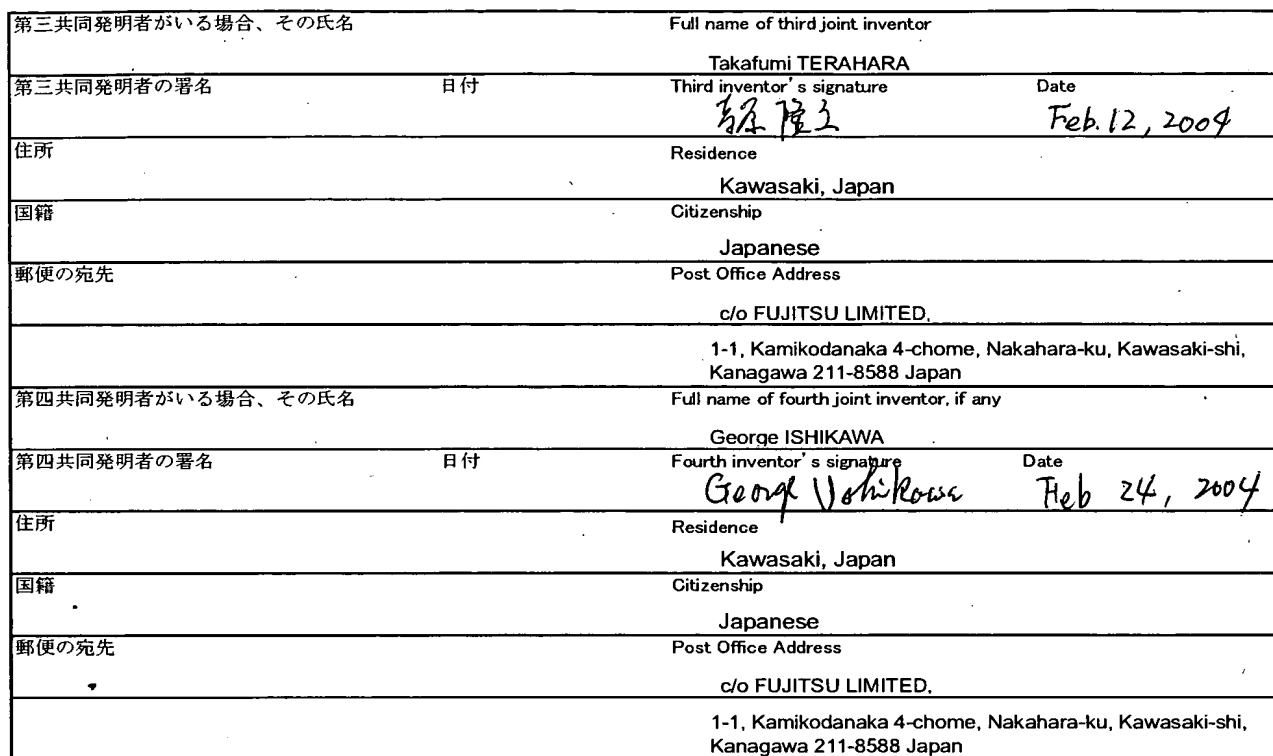 第三共同発明者がいる場合、その氏名 Full name of third joint inventor
Takafumi TERAHARA
第三共同発明者の署名 日付 Third inventor's signature Date
Feb. 12, 2004
住所 Residence
Kawasaki, Japan
国籍 Citizenship
Japanese
郵便の宛先 Post Office Address
c/o FUJITSU LIMITED,
1-1, Kamikodanaka 4-chome, Nakahara-ku, Kawasaki-shi,
Kanagawa 211-8588 Japan
第四共同発明者がいる場合、その氏名 Full name of fourth joint inventor, if any
George ISHIKAWA
第四共同発明者の署名 日付 Fourth inventor's signature Date
George Ishikawa Feb 24, 2004
住所 Residence
Kawasaki, Japan
国籍 Citizenship
Japanese
郵便の宛先 Post Office Address
c/o FUJITSU LIMITED,
1-1, Kamikodanaka 4-chome, Nakahara-ku, Kawasaki-shi,
Kanagawa 211-8588 Japan